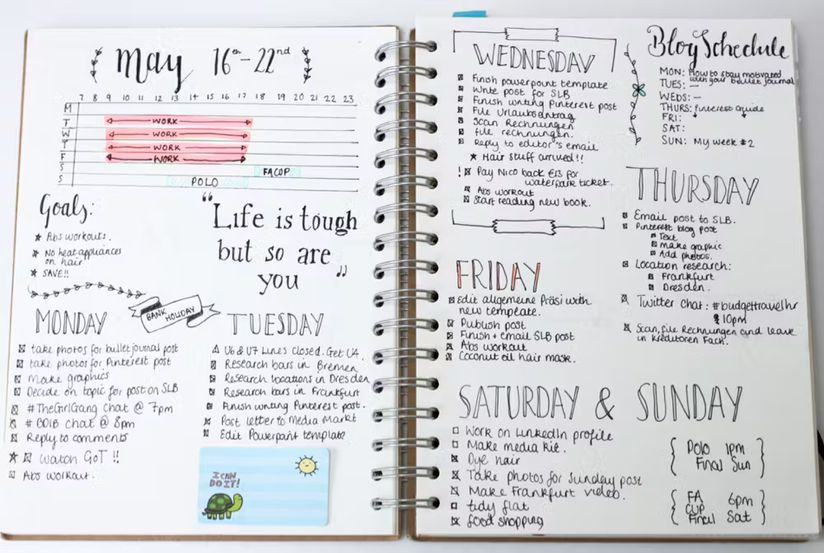 May 16th - 22nd
7 8 9 10 11 12 13 14 15 16 17 18 19 20 21 22 23
M
T WORK
W WORK
T WORK
F WORK
S FA CUP
S POLO
Goals:
Abs workouts.
No heat appliances
on hair
SAVE!!
"Life is tough
but so are
you"
MONDAY
BANK HOLIDAY
take photos for bullet journal post
take photos for Pinterest post
Make graphics
Decide on topic for post on SLB
#TheGirlGang chat @ 7pm
chat @ 8pm
Reply to comments
Watch GoT !!
Abs workout.
TUESDAY
U6 & U7 Lines closed. Get U4.
Research bars in Bremen
Research locations in Dresden
Research bars in Frankfurt
Finish writing Pinterest post.
Post letter to Media Markt
Edit Powerpoint template
I CAN
DO IT!
WEDNESDAY
Finish powerpoint template
Write post for SLB
Finish writing Pinterest post
File Urlaubsantrag
Scan Rechnungen
File rechnungen.
Reply to editor's email
Hair stuff arrived!!
! Pay Nico back €13 for
waterpark ticket.
Abs workout
Start reading new book.
FRIDAY
Edit allgemeine Präsi with
new template.
Publish post
Finish + email SLB post
Abs workout
Coconut oil hair mask.
Blog Schedule
MON: How to stay motivated
with your bullet journal
TUES: —
WEDS: —
THURS: Pinterest Guide
FRI:
SAT:
SUN: My week #2
THURSDAY
Email post to SLB.
Pinterest blog post
Text
Make graphic
Add photos.
Location research:
Frankfurt
Dresden.
Twitter chat: #budgettravelhr
10pm
Scan, file Rechnungen and leave
in Kreditoren Fach.
SATURDAY & SUNDAY
Work on LinkedIn profile
Make media kit.
Dye hair
Take photos for Sunday post
Make Frankfurt video.
tidy flat
food shopping
Polo 1pm
Final Sun
FA 6pm
CUP
Final Sat